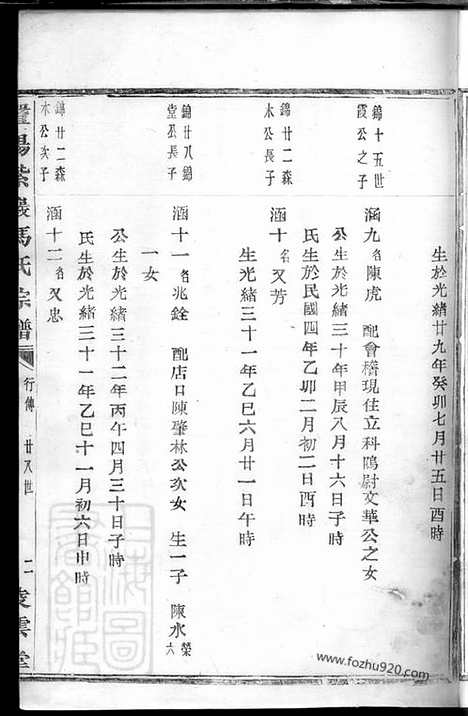 生於光緒廿九年癸卯七月廿五日酉時
錦十五世
霞公之子
涵九名陳虎 配會稽現住立科鴎尉文華公之女
公生於光緒三十年甲辰八月十六日子時
氏生於民國四年乙卯二月初二日酉時
錦廿二森
木公長子
涵十名又芳
生光緒三十一年乙巳六月廿一日午時
錦廿八錦
堂公長子
涵十一名兆銓 配店口陳肇林公次女 生一子 陳水榮 六
一女
公生於光緒三十二年丙午四月三十日子時
氏生於光緒三十一年乙巳十一月初六日申時
錦廿二森
木公次子
涵十二名又忠
暨陽紫巖馬氏宗譜 行傳 廿八世 二 凌雲堂
www.fozhu920.com